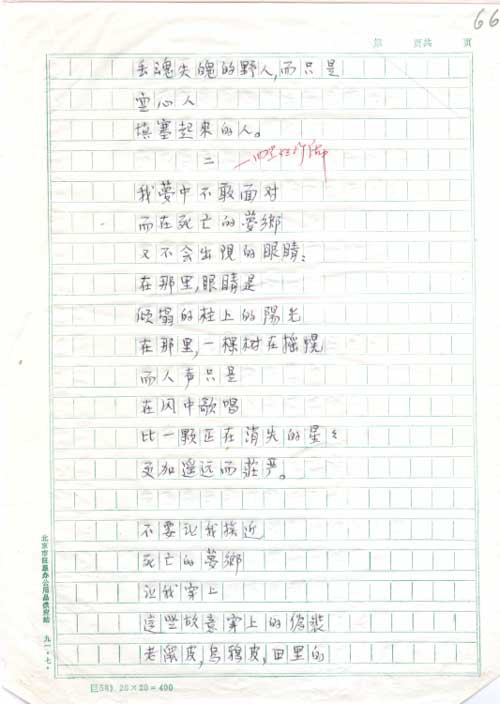 66
第 页共 页
丢魂失魄的野人,而只是
空心人
填塞起來的人。
二
我夢中不敢面对
而在死亡的夢鄉
又不会出現的眼睛:
在那里,眼睛是
倾塌的柱上的陽光
在那里,一棵树在摇愰
而人声只是
在风中歌唱
比一颗正在消失的星星
更加遥远而莊严。
不要让我接近
死亡的夢鄉
让我穿上
這些故意穿上的偽裝
老鼠皮,烏鴉皮,田里的
北京市
办公用品供应站
九一·七·
20×20=400